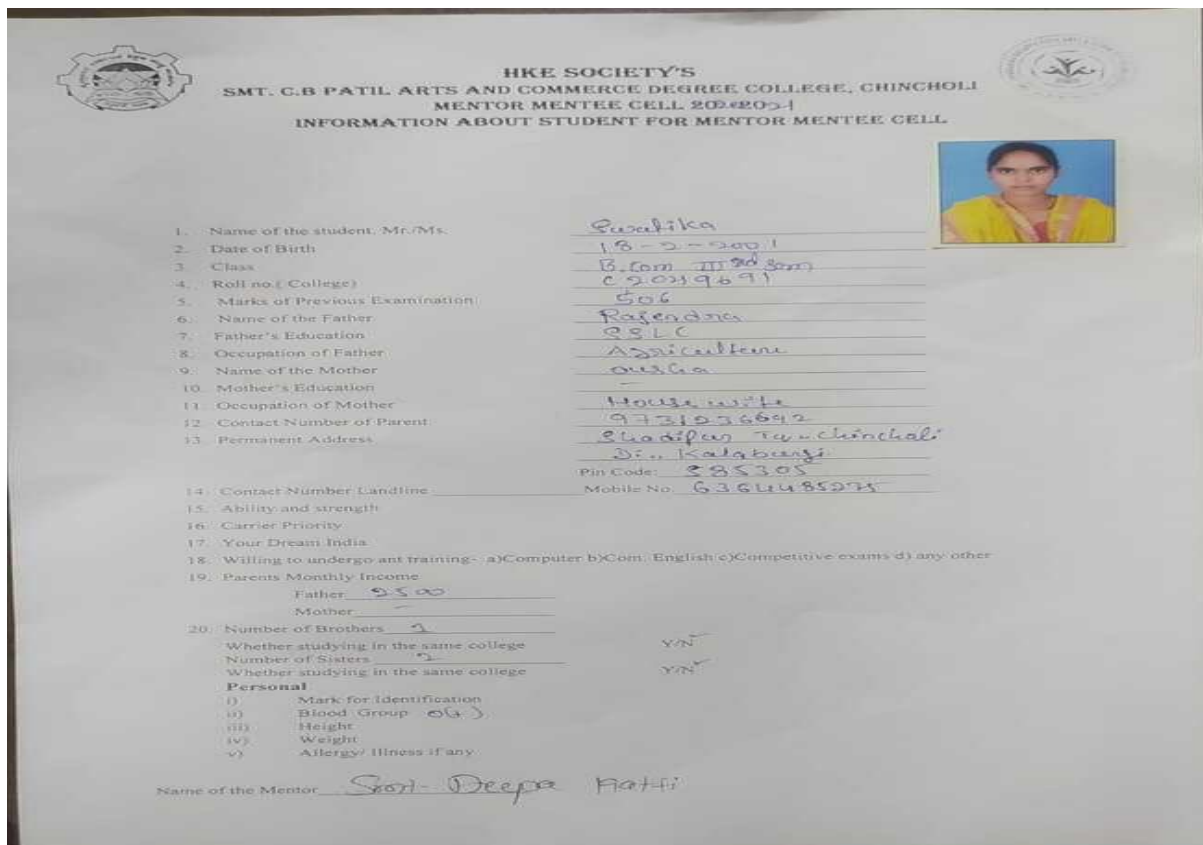 HKE SOCIETY'S
SMT. C.B PATIL ARTS AND COMMERCE DEGREE COLLEGE, CHINCHOLI
MENTOR MENTEE CELL
INFORMATION ABOUT STUDENT FOR MENTOR MENTEE CELL
1. Name of the student, Mr./Ms.
2. Date of Birth 18-2-2001
3. Class B.com IIIrd sem
4. Roll no.( College)
5. Marks of Previous Examination 506
6. Name of the Father Rajendra
7. Father's Education SSLC
8. Occupation of Father Agriculture
9. Name of the Mother
10. Mother's Education –
11. Occupation of Mother House wife
12. Contact Number of Parent 9731236692
13. Permanent Address Chincholi
Kalaburgi
Pin Code: 585305
14. Contact Number Landline Mobile No. 6364485275
15. Ability and strength
16. Carrier Priority
17. Your Dream India
18. Willing to undergo ant training- a)Computer b)Com. English c)Competitive exams d) any other
19. Parents Monthly Income
Father 2500
Mother –
20. Number of Brothers
Whether studying in the same college Y/N
Number of Sisters 2
Whether studying in the same college Y/N
Personal
i) Mark for Identification
ii) Blood Group O(+)
iii) Height
iv) Weight
v) Allergy/ Illness if any
Name of the Mentor Smt- Deepa